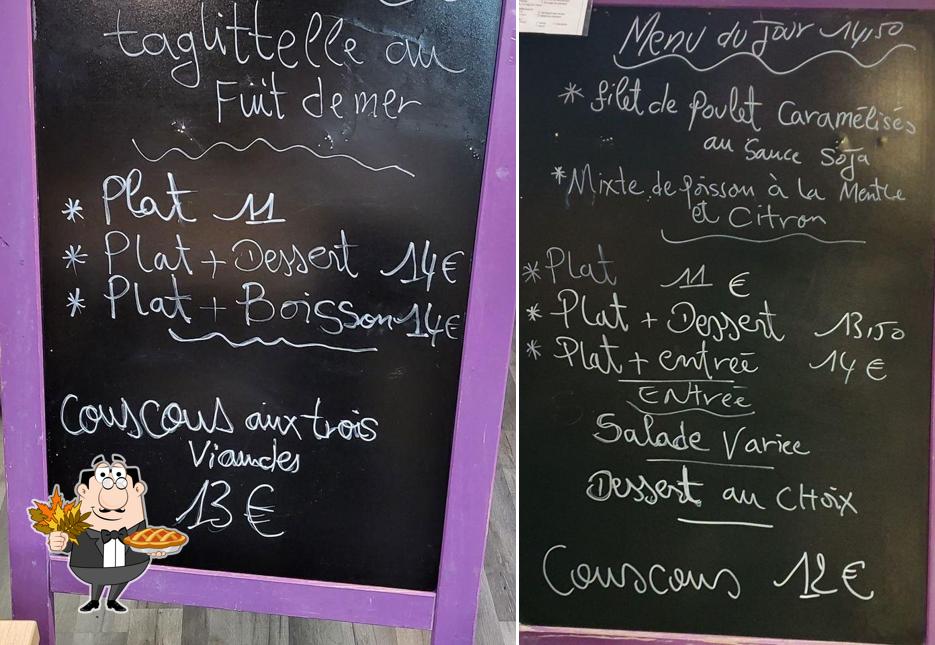 taglittelle au
Fuit de mer
* Plat 11
* Plat + Dessert 14€
* Plat + Boisson 14€
Couscous aux trois
Viandes
13 €
Menu du jour 14,50
* filet de Poulet Caramélisés
au Sauce Soja
* Mixte de poisson à la Menthe
et Citron
* Plat 11 €
* Plat + Dessert 13,50
* Plat + entreé 14 €
ENtreé
Salade Variee
Dessert au CHOIX
Couscous 12€